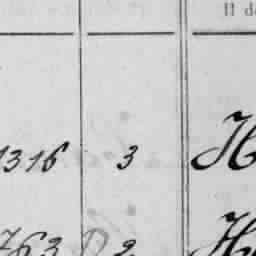 11 d
1316 3 H
763 2 H